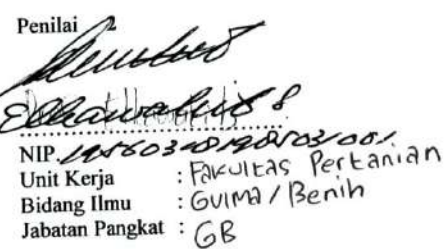 Penilai 2
NIP.
Unit Kerja : Fakultas Pertanian
Bidang Ilmu : Gulma / Benih
Jabatan Pangkat : GB